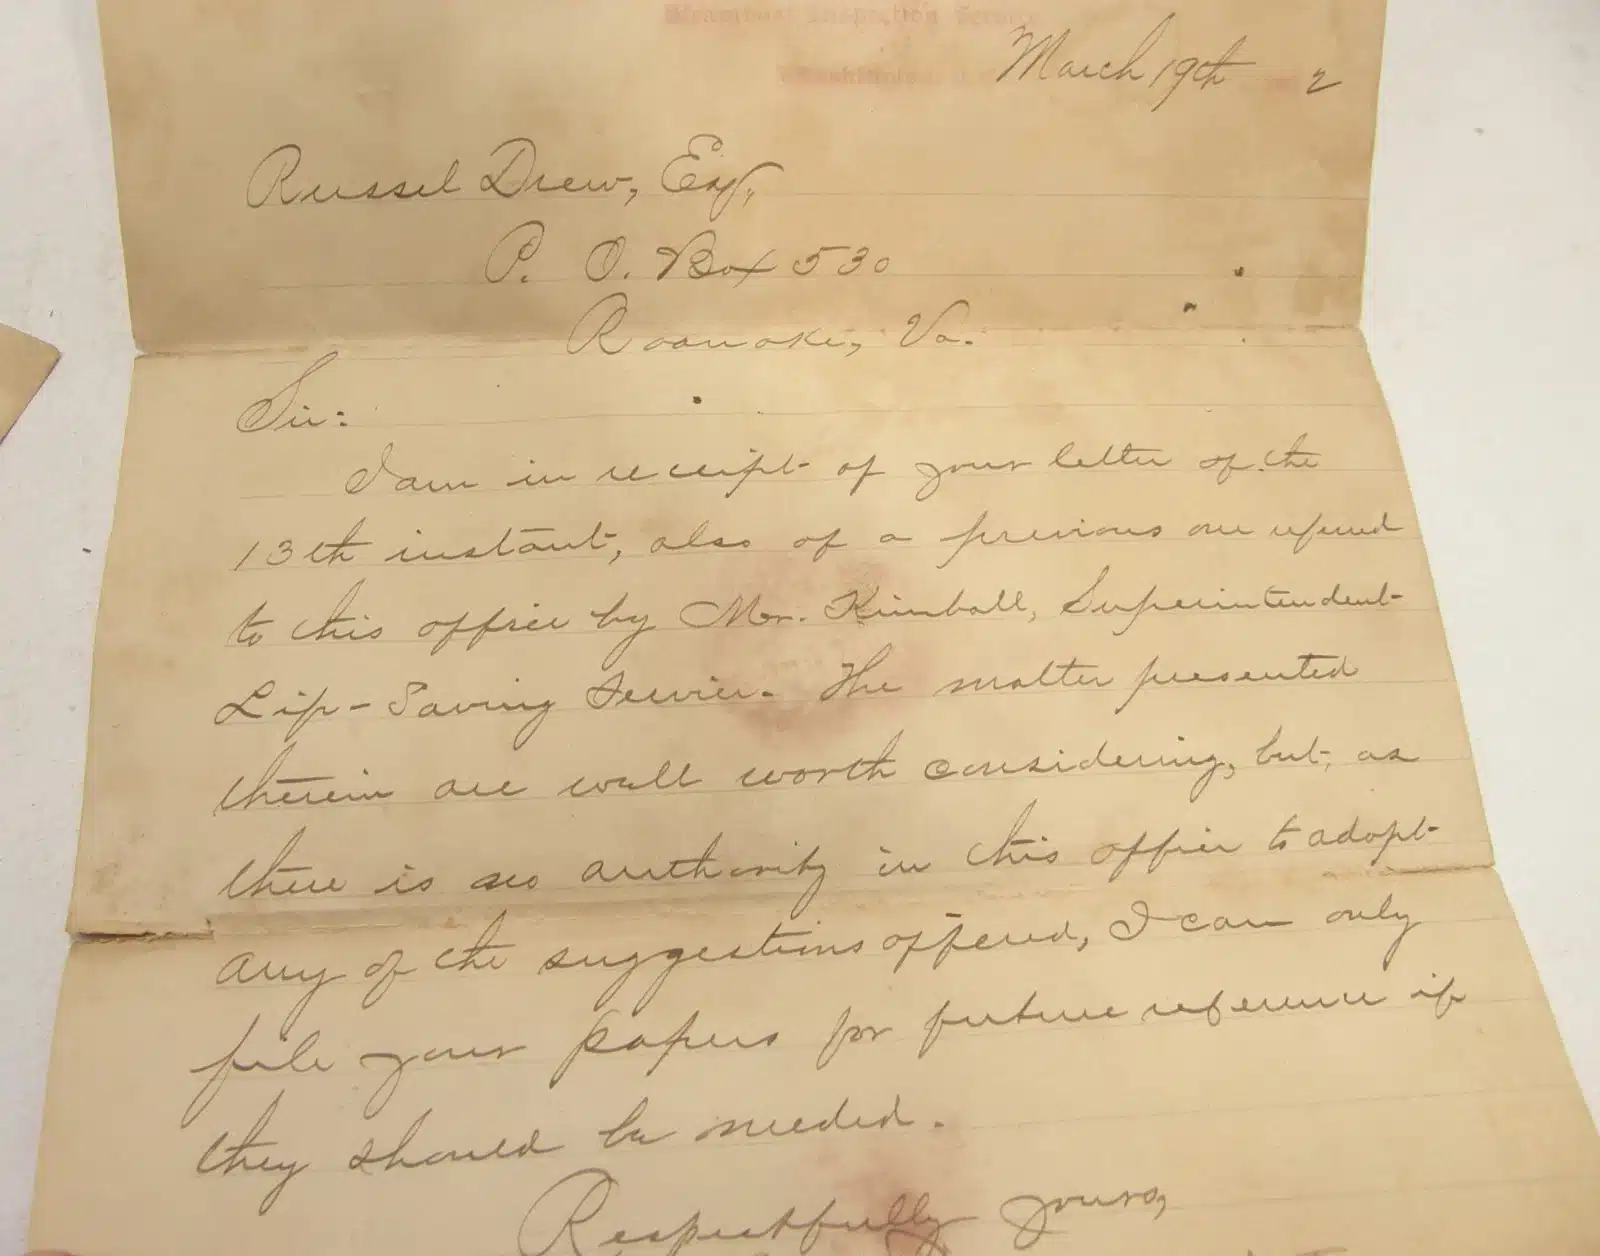 Steamboat Inspection Service
March 19th 2
Russel Drew, Esq,
P. O. Box 530
Roanoke, Va.
Sir:
I am in receipt of your letter of the
13th instant, also of a previous one refered
to this office by Mr. Kimball, Superintendent
Life-Saving Service. The matter presented
therein are well worth considering, but, as
there is no authority in this office to adopt
any of the suggestions offered, I can only
file your papers for future reference if
they should be needed.
Respectfully yours,